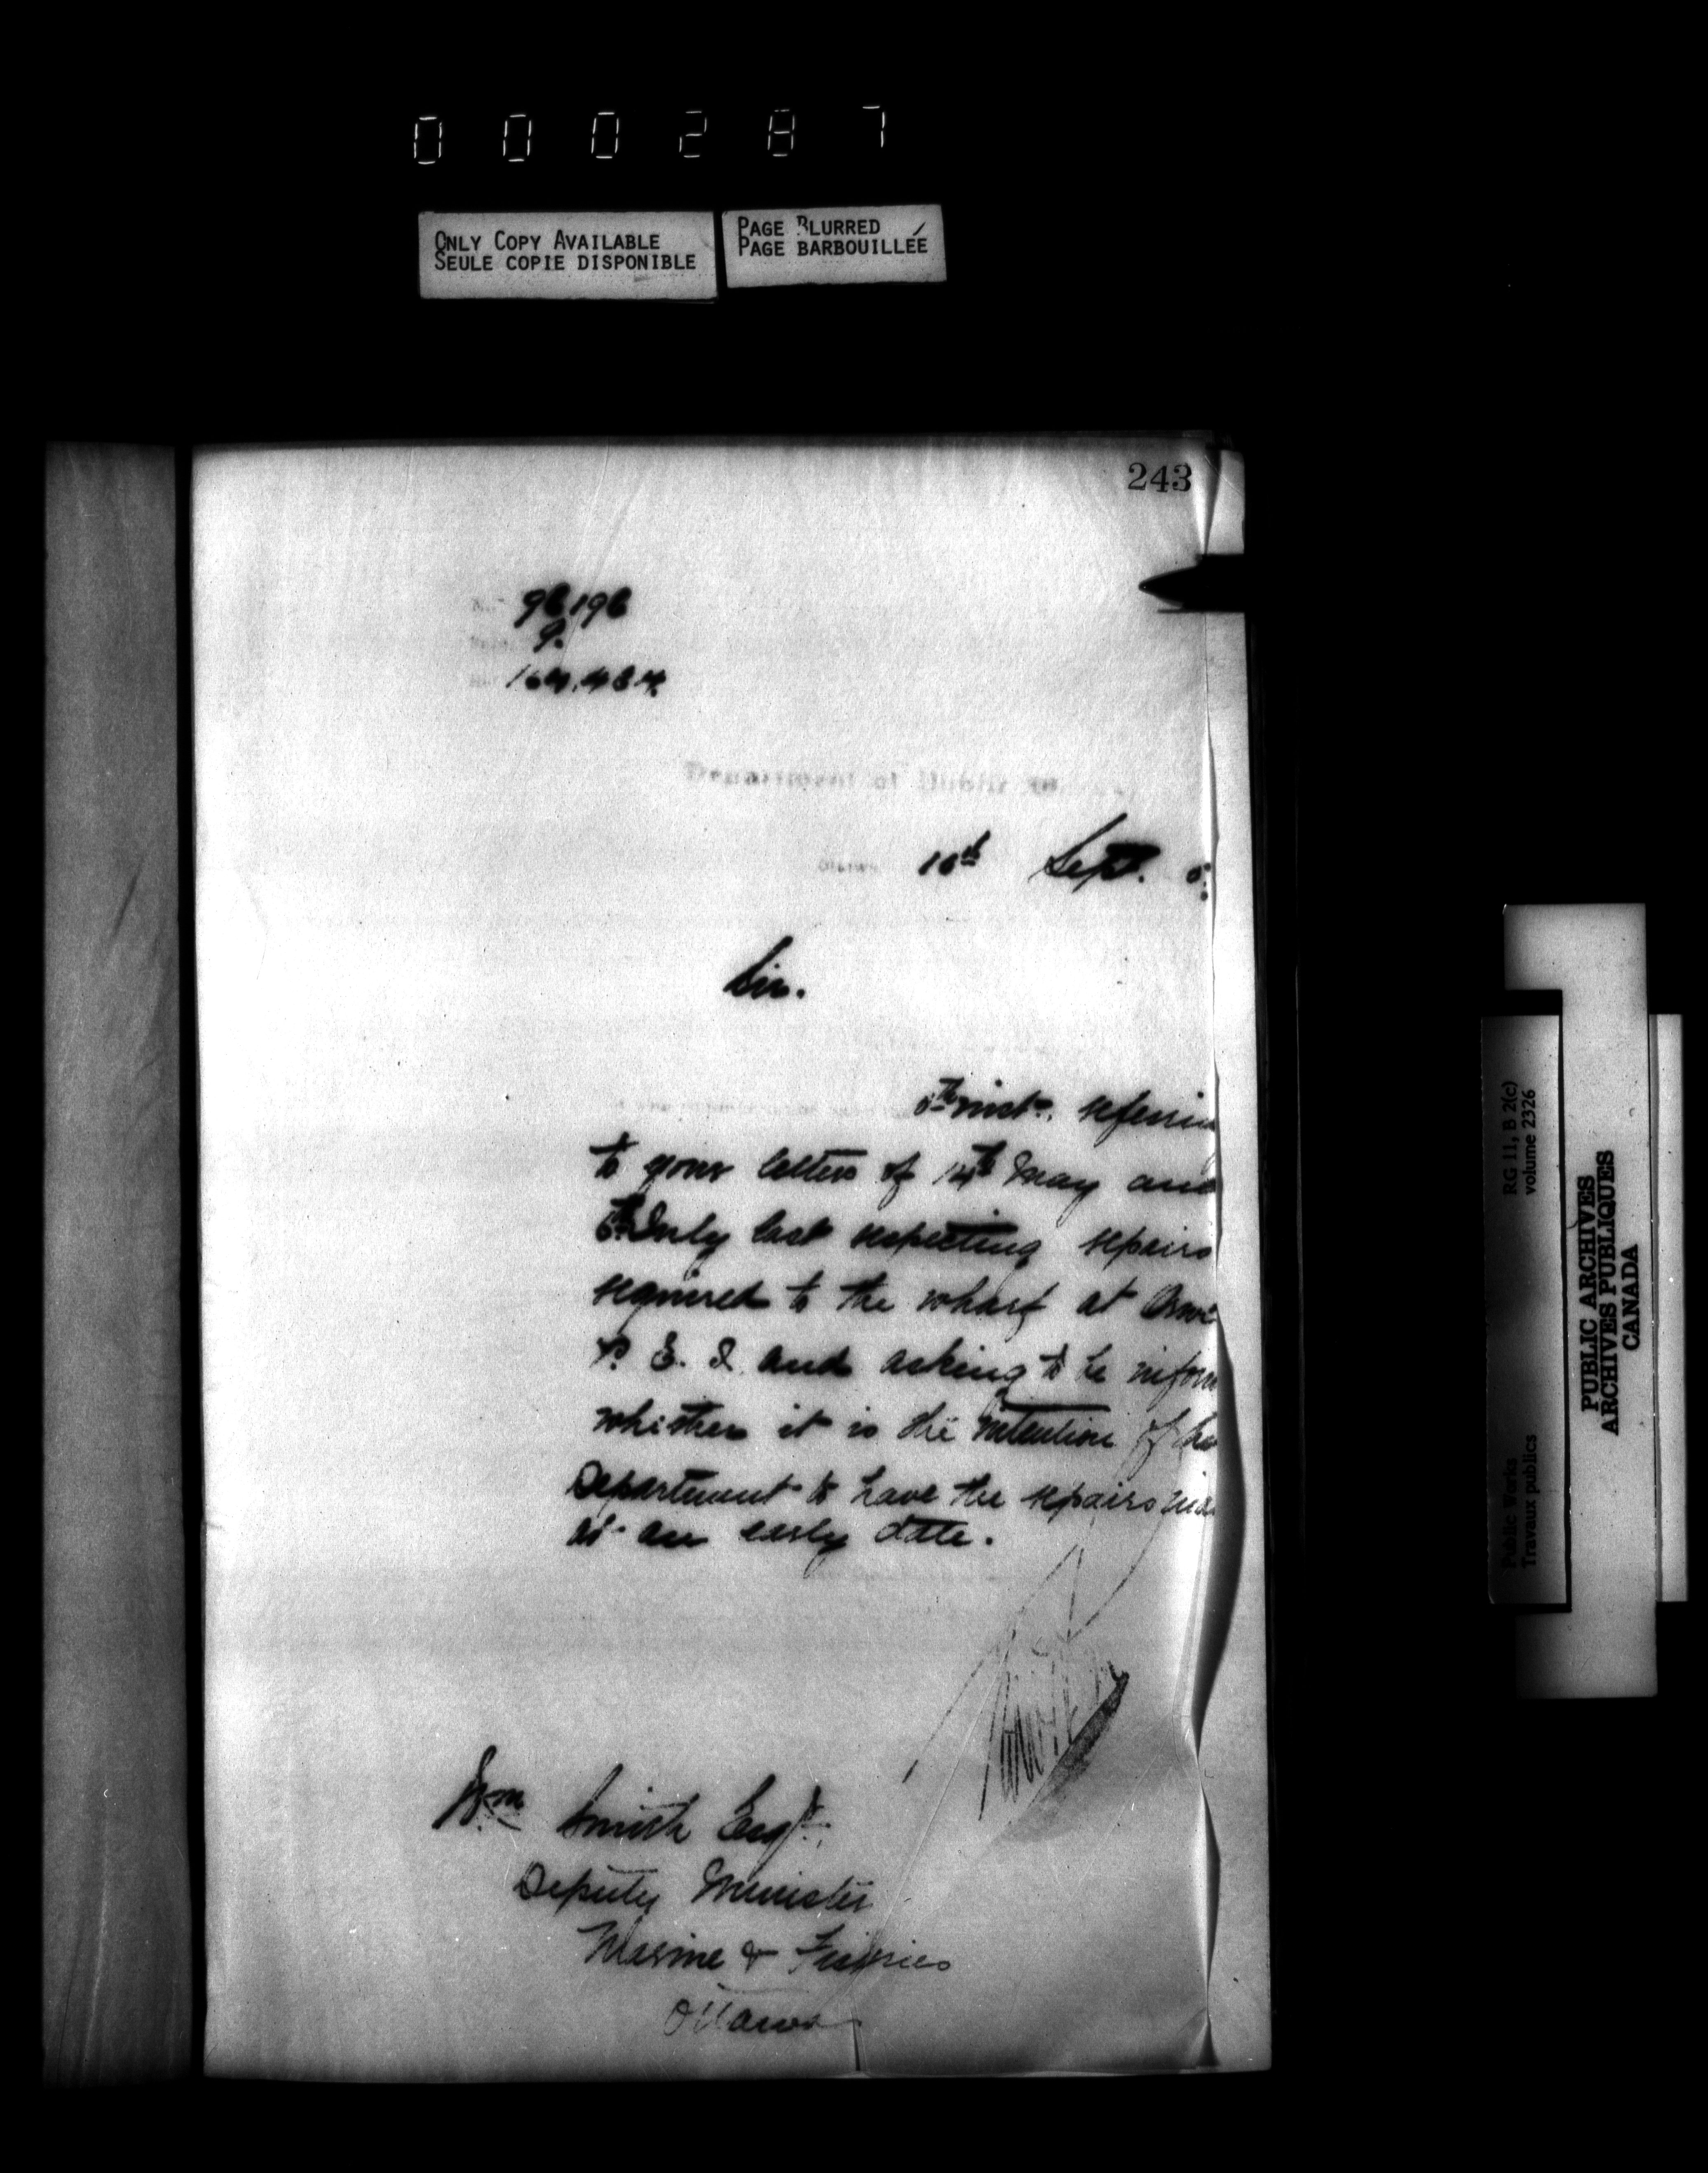 000287
ONLY COPY AVAILABLE
SEULE COPIE DISPONIBLE
PAGE BLURRED
PAGE BARBOUILLÉE
243
96196
Department of Public
Ottawa 10th Sept.
Sir.
inst. referrin
to your letters of 14th May and
6th July last respecting repairs
required to the wharf at
P. E. I. and asking to be inform
whether it is the intention of the
Department to have the repairs
at an early date.
Wm Smith Esqr.
Deputy Minister
Marine & Fisheries
Ottawa
RG 11, B 2(c)
volume 2326
Public Works
Travaux publics
PUBLIC ARCHIVES
ARCHIVES PUBLIQUES
CANADA